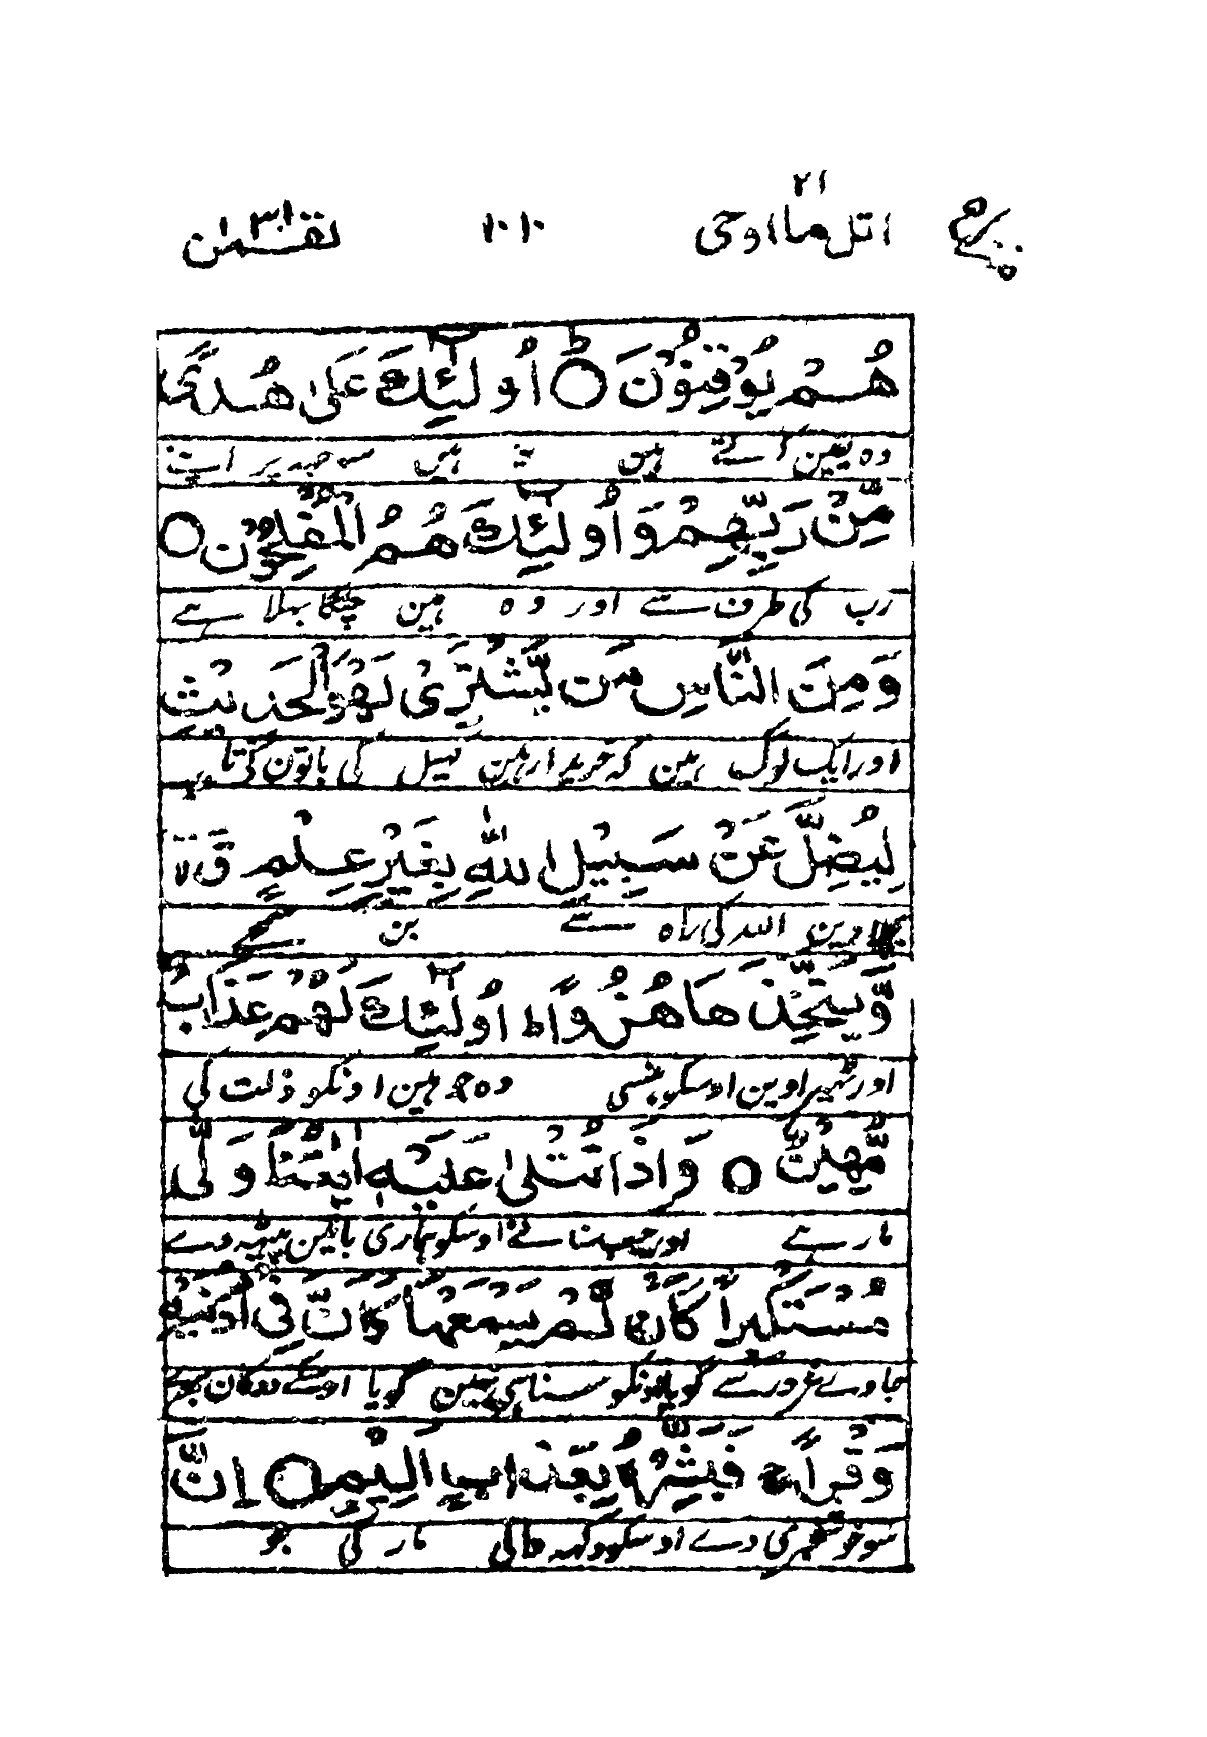 اتل ما اوحی ٢١ ١٠١٠ لقمٰن ٣١
هُمْ يُوْقِنُوْنَ ○ اُولٰٓئِكَ عَلٰى هُدًى
وہ یقین کرتے ہین یہ ہین سوجہہ پر اپنے
مِّنْ رَّبِّهِمْ وَاُولٰٓئِكَ هُمُ الْمُفْلِحُوْنَ ○
رب کی طرف سے اور وہ ہین جنکا بہلا ہے
وَمِنَ النَّاسِ مَنْ يَّشْتَرِىْ لَهْوَالْحَدِيْثِ
اور ایک لوگ ہین کہ خریدار ہین کہیل کی باتون کی تا
لِيُضِلَّ عَنْ سَبِيْلِ اللّٰهِ بِغَيْرِ عِلْمٍ ق
بچلا دین اللہ کی راہ سے بن سمجھے
وَّيَتَّخِذَ هَا هُزُوًا ط اُولٰٓئِكَ لَهُمْ عَذَابٌ
اور ٹہیراوین اوسکو ہنسی وہ جو ہین اونکو ذلت کی
مُّهِيْنٌ ○ وَاِذَا تُتْلٰى عَلَيْهِ اٰيٰتُنَا وَلّٰى
مار ہے اور جب سنائے اوسکو ہماری باتین پیٹھہ دے
مُسْتَكْبِرًا كَاَنْ لَّمْ يَسْمَعْهَا كَاَنَّ فِىْ اُذُنَيْهِ
جاوے غرور سے گویا اونکو سنا ہی نہین گویا اوسکے دو کان
وَقْرًا ج فَبَشِّرْهُ بِعَذَابٍ اَلِيْمٍ ○ اِنَّ
سو خوشخبری دے اوسکو دکہہ والی مار کی جو